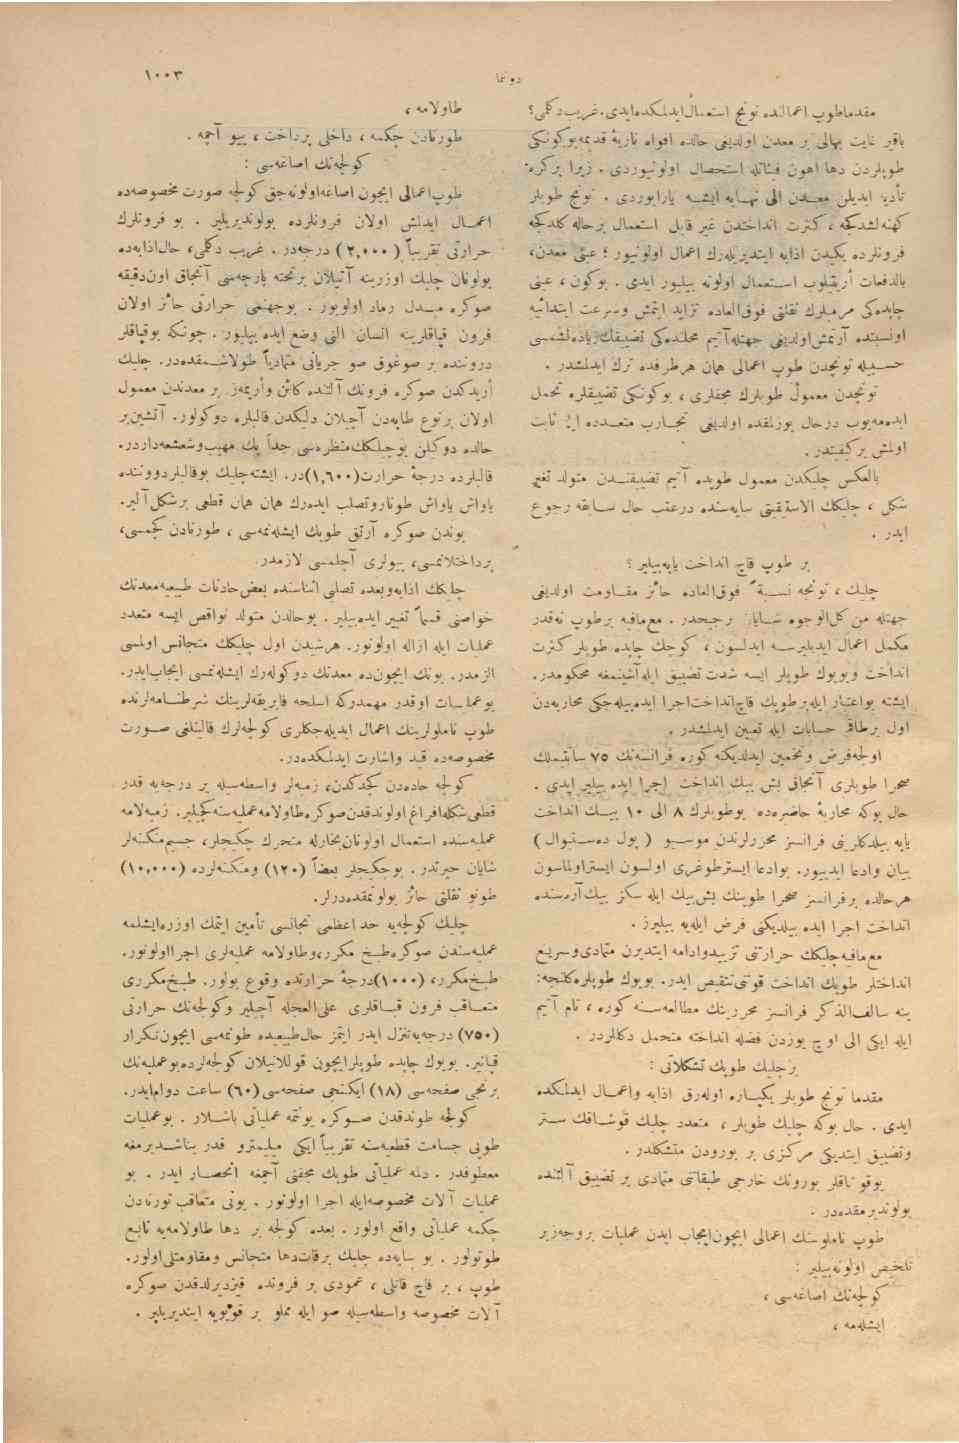 دونما
١٠٠٣
مقدما طوپ اعمالنده تونج استعمال ایدلمكده ایدی. غریب دكلمی؟
باقر غایت بهالی بر معدن اولدیغی حالده افواه ناریهٔ قدیمه بوكونكی
طوپلردن دها اهون فیئاتله استحصال اولونیوردی. زیرا بر كره
تأدیه ایدیلن معدن الی نهایه ایشه یارایوردی. تونج طوپلر
كهنه لشدكجه ، كثرت انداختدن غیر قابل استعمال بر حاله كلدكجه
فرونلرده یكیدن اذابه ایتدیریله رك اعمال اولونیور ؛ عینی معدن،
بالدفعات أریتیلوب استعمال اولونه بیلیور ایدی. بوكون ، عینی
چاپده كی مرمیلرك ثقلتی فوق العاده تزاید ایتمش وسرعت ابتدائیه
اونسبتده آرتمش اولدیغی جهتله آتیم محلنده كی تضییقك زیاده لشمسی
حسبیله تونچدن طوپ اعمالی همان هر طرفده ترك ایدلمشدر .
تونچدن معمول طوپلرك مجفلری ، بوكونكی تضییقلره تحمل
ایده مه یوب درحال بوزلمقده اولدیغی تجارب متعدده ایله ثابت
اولمش بر كیفیتدر .
بالعكس چلیكدن معمول طوپده آتیم تضییقندن متولد تغیر
شكل ، چلیكك الاستیقیتی سایه سنده درعقب حال سابقه رجوع
ایدر .
بر طوپ قاچ انداخت یاپه بیلیر ؟
چلیك ، تونجه نسبةً فوق العاده حائز مقاومت اولدیغی
جهتله من كل الوجوه شایان ترجیحدر . مع مافیه بر طوپ نه قدر
مكمل اعمال ایدیلیرسه ایدلسون ، كوچك چاپده طوپلر كثرت
انداخت وبویوك طوپلر ایسه شدت تضییق ایله آشینمغه محكومدر.
ایشته بو اعتبار ایله بر طوپك قاچ انداخت اجرا ایده بیله جكی محاربه دن
اول بر طاقم حسابات ایله تعیین ایدلمشدر .
اولجه فرض وتخمین ایدلدیكنه كوره فرانسه نك ٧٥ سانتیملك
صحرا طوپلری آنجاق بش بیك انداخت اجرا ایده بیلیر ایدی .
حال بوكه محاربهٔ حاضره ده بو طوپلرك ٨ الی ١٠ بیك انداخت
یاپه بیلدكلرینی فرانسز محررلرندن موسیو ( پول ده ستیوال )
بیان وادعا ایدییور. بو ادعا ایستر طوغری اولسون ایستر اولماسون
هر حالده بر فرانسز صحرا طوپنك بش بیك ایله سكز بیك آره سنده
انداخت اجرا ایده بیلدیكنی فرض ایله یه بیلیرز .
مع مافیه چلیكك حرارتنی تزیید وادامه ایتدیرن متمادی وسریع
انداختلر طوپك انداخت قوتنی تنقیص ایدر. بویوك طوپلره كلنجه:
ینه سالف الذكر فرانسز محررینك مطالعه سنه كوره ، تام آتیم
ایله ایكی الی اوچ یوزدن فضله انداخته متحمل دكللردر .
بر چلیك طوپك تشكلاتی :
مقدما تونج طوپلر یكپاره اوله رق اذابه واعمال ایدلمكده
ایدی . حال بوكه چلیك طوپلر ، متعدد چلیك قوشاقك ستر
وتضییق ایتدیكی مركزی بر بورودن متشكلدر .
بو قوشاقلر بورونك خارجی طبقاتنی متمادی بر تضییق آلتنده
بولوندیرمقده در .
طوپ ناملوسنك اعمالی ایچون ایجاب ایدن عملیات بروجه زیر
تلخیص اولونه بیلیر :
كولچه نك اصاغه سی ،
ایشلمه ،
طاولامه ،
طورنادن چكمه ، داخلی پرداخت ، ییو آچمه .
كولچه نك اصاغه سی :
طوپ اعمالی ایچون اصاغه اولونه جق كولچه صورت مخصوصه ده
اعمال ایدلمش اولان فرونلرده بولوندیریلیر . بو فرونلرك
حرارتی تقریباً (٢,٠٠٠) درجه در . غریب دكلمی، حال اذابه ده
بولونان چلیك اوزرینه آتیلان بر تخته پارچه سی آنجاق اون دقیقه
صوكره مبدل رماد اولویور . بو جهنمی حرارتی حائز اولان
فرون قپاقلرینه انسان النی وضع ایده بیلیور . چونكه بو قپاقلر
دروننده بر صوغوق صو جریانی متمادیاً طولاشمقده در. چلیك
أریدكدن صوكره فرونك آلتنده كائن وأریمز بر معدندن معمول
اولان بر نوع طاپه دن آچیلان دلیكدن قالبلره دوكولور. آتشین بر
حالده دوكیلن بو چلیكك منظره سی جداً پك مهیب وشعشعه داردر.
قالبلرده درجهٔ حرارت (١,٦٠٠) در. ایشته چلیك بو قالبلر دروننده
یاواش یاواش طوكار وتصلب ایده رك همان همان قطعی بر شكل آلیر.
بوندن صوكره آرتق طوپك ایشلنمه سی ، طورنادن كچمسی،
پرداختلانمسی، ییولری آچلمسی لازمدر.
چلیكك اذابه وبعده تصلبی اثناسنده بعض حادثات طبیعیه معدنك
خواصنی قسماً تغییر ایده بیلیر. بو حالدن متولد نواقص ایسه متعدد
عملیات ایله ازاله اولونور. هر شیدن اول چلیكك متجانس اولمسی
الزمدر. بونك ایچون ده معدنك دوكوله رك ایشلنمسی ایجاب ایدر.
بو عملیات اوقدر مهمدركه اسلحه فابریقه لرینك شرطنامه لرنده
طوپ ناملولرینك اعمال ایدیله جكلری كولچه لرك قالینلغی صورت
مخصوصه ده قید واشارت ایدلمكده در.
كولچه حاده دن كچدكدن، زمبه لر واسطه سیله بر درجه یه قدر
قطعی شكله افراغ اولوندقدن صوكره طاولامه عملیه سنه كچیلیر. زمبه لامه
عملیه سنده استعمال اولونان بخارله متحرك چكیجلر، جسیم منكنه لر
شایان حیرتدر. بو چكیجلر بعضاً (١٢٠) ومنكنه لرده (١٠,٠٠٠)
طونو ثقلتی حائز بولونمقده درلر.
چلیك كولچه یه حد اعظمی تجانسی تأمین ایتمك اوزره ایشلمه
عملیه سندن صوكره طبخ مكرر، وطاولامه عملیه لری اجرا اولونور.
طبخ مكرر، (١٠٠٠) درجهٔ حرارتده وقوع بولور. طبخ مكرری
متعاقب فرون قپاقلری علی العجله آچیلیر وكولچه نك حرارتی
(٧٥٠) درجه یه تنزل ایدر ایتمز حال طبیعیده طوتمه سی ایچون تكرار
قپانیر. بویوك چاپده طوپلر ایچون قوللانیلان كولچه لرده بو عملیه نك
برنجی صفحه سی (١٨) ایكنجی صفحه سی (٦٠) ساعت دوام ایدر.
كولچه طوندقدن صوكره یونتمه عملیاتی باشلار . بو عملیات
طوپی جسامت قطعیه سنه تقریباً ایكی میلیمترو قدر یناشدیرمغه
معطوفدر . دلمه عملیاتی طوپك مجفنی آچمغه انحصار ایدر . بو
عملیات آلات مخصوصه ایله اجرا اولونور . بونی متعاقب تورنادن
چكمه عملیاتی واقع اولور . بعده كولچه بر دها طاولامه یه تابع
طوتولور . بو سایه ده چلیك بر قات دها متجانس ومقاومتلی اولور.
طوپ ، بر قاچ قاتلی ، عمودی بر فرونده قیزدیرلدقدن صوكره
آلات مخصوصه واسطه سیله صو ایله مملو بر قویویه ایندیریلیر .